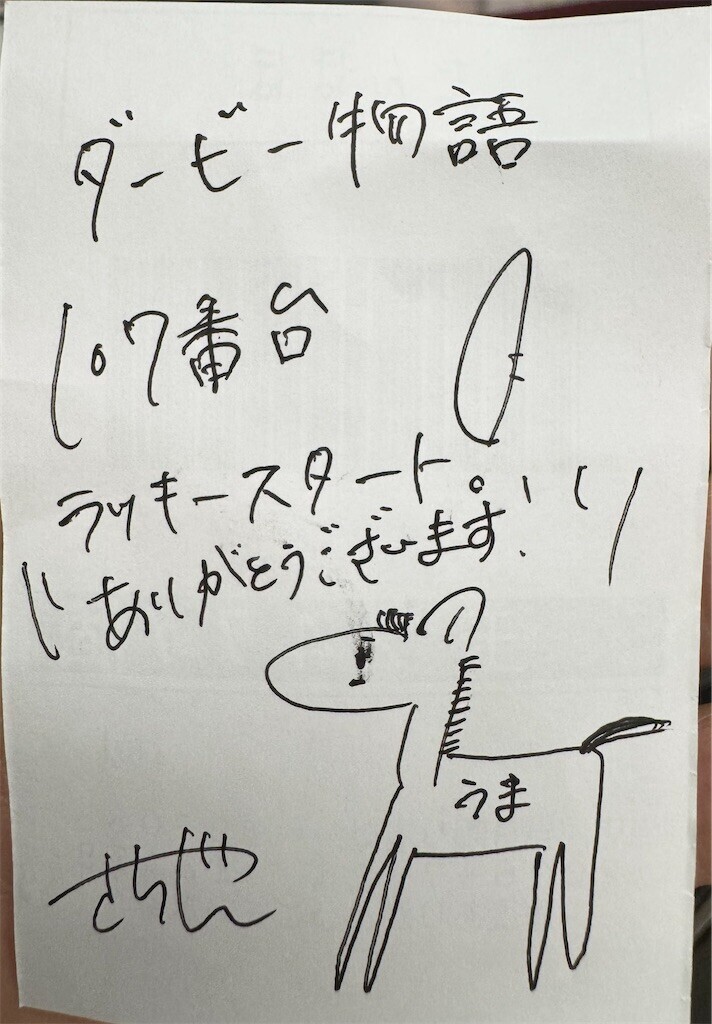 ダービー物語
107番台
ラッキースタート。
ありがとうございます!
うま